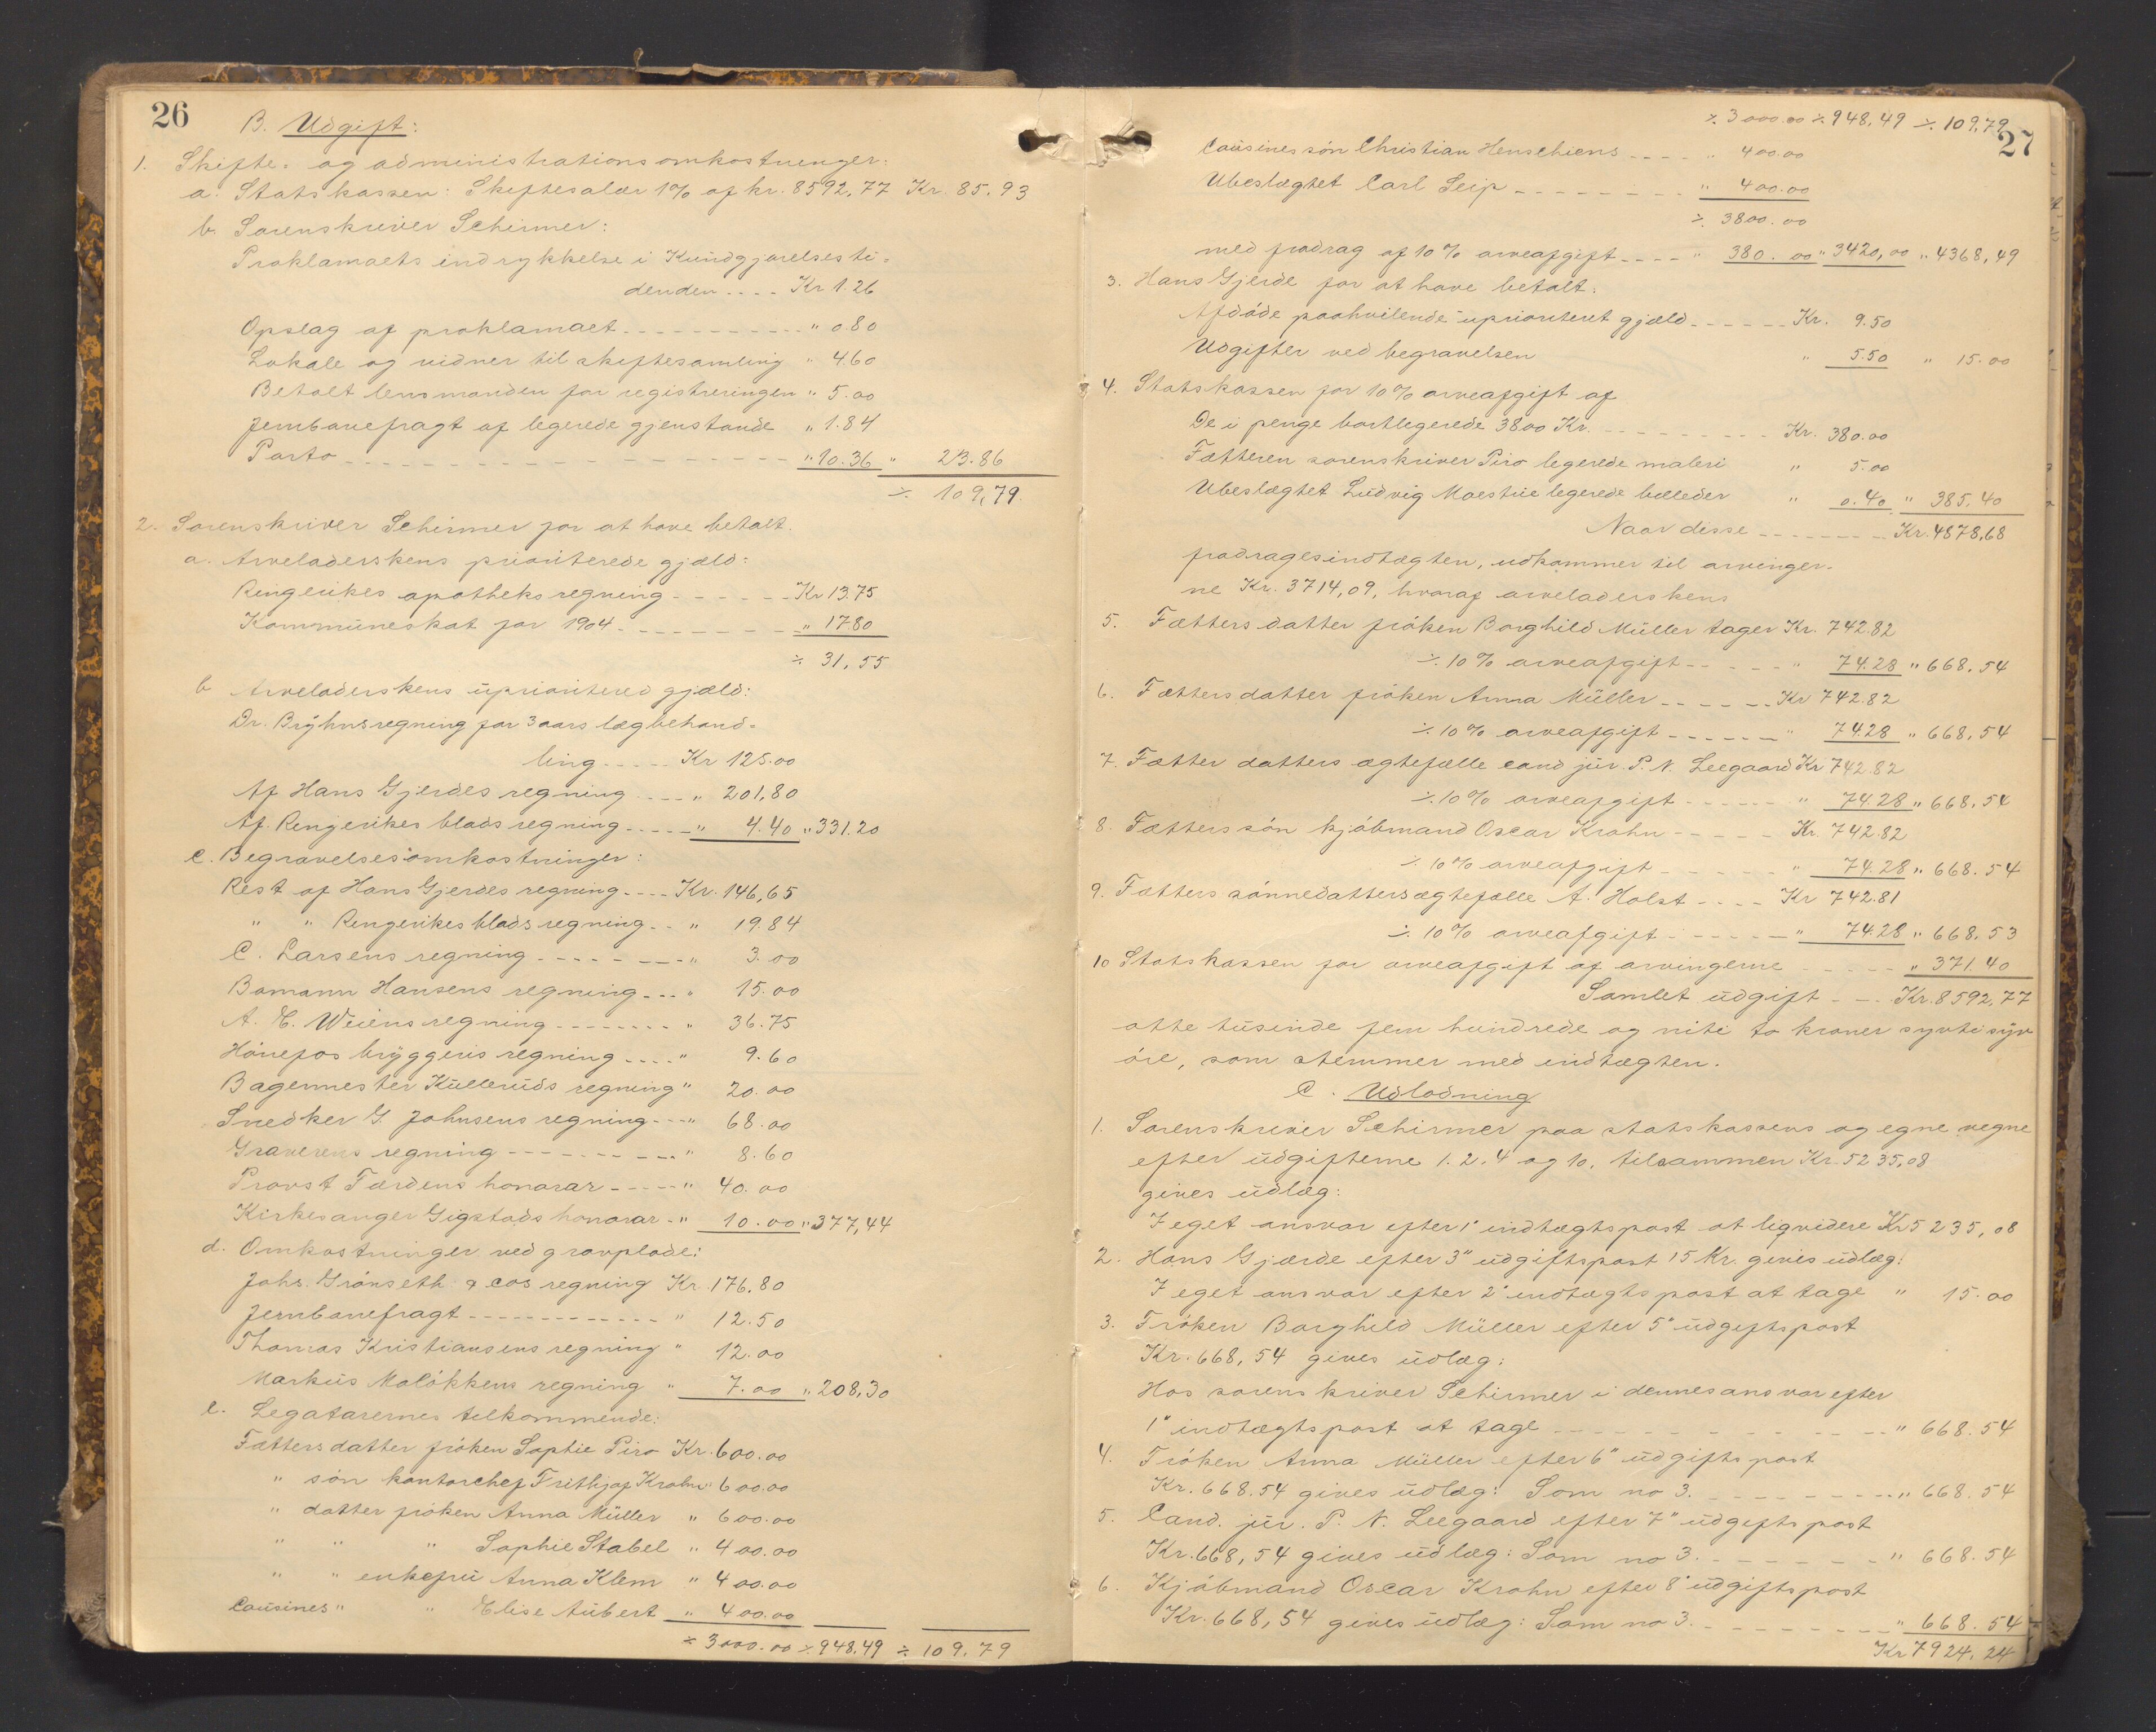 26
B. Udgift:
1. Skifte- og administrationsomkostninger:
a. Statskassen: Skiftesalær 1% af kr. 8592,77 Kr. 85.93
b. Sorenskriver Schirmer:
Proklamaets indrykkelse i Kundgjørelsesti-
denden .... Kr 1.26
Opslag af proklamaet - - - " 0.80
Lokale og vidner til skiftesamling " 4.60
Betalt lensmanden for registreringen " 5.00
Jernbanefragt af legerede gjenstande " 1.84
Porto - - - " 10.36 " 23.86
÷ 109,79
2. Sorenskriver Schirmer for at have betalt.
a. Arveladerskens prioriterede gjæld:
Ringerikes apotheks regning - - - Kr 13.75
Kommuneskat for 1904 - - - " 17.80
÷ 31,55
b Arveladerskens uprioritered gjæld:
Dr. Brÿhns regning for 3 aars lægbehand-
ling - - - Kr 125.00
Af Hans Gjerdes regning - - - " 201,80
Af. Ringerikes blads regning - - - " 4.40 " 331.20
c. Begravelsesomkostninger:
Rest af Hans Gjerdes regning - - - Kr. 146,65
" " Ringerikes blads regning - - " 19.84
C. Larsens regning - - - " 3.00
Bomann Hansens regning - - - " 15.00
A. E. Weiens regning - - - " 36.75
Hönefos brÿggeris regning - - - " 9.60
Bagermester Kulleruds regning " 20.00
Snedker G. Johnsens regning - - " 68.00
Graverens regning - - - " 8.60
Provst Færdens honorar - - - " 40.00
Kirkesanger Gigstads honorar - " 10.00 " 377,44
d. Omkostninger ved gravplade:
Johs. Grönseth & cos regning Kr. 176,80
Jernbanefragt - - - " 12.50
Thomas Kristiansens regning " 12.00
Markus Molökkens regning " 7.00 " 208,30
e. Legatarernes tilkommende:
Fætters datter fröken Sophie Piro Kr. 600.00
" sön kontorchef Frithjof Krohn " 600.00
" datter fröken Anna Müller " 600.00
" " " Sophie Stabel " 400.00
" " enkefru Anna Klem " 400.00
Cousines " " Elise Aubert " 400.00
÷ 3000.00 ÷ 948.49 ÷ 109.79
÷ 3000.00 ÷ 948,49 ÷ 109,79
27
Cousines sön Christian Henschiens - - - " 400.00
Ubeslægtet Carl Seip - - - " 400.00
÷ 3800.00
med fradrag af 10% arveafgift - - - " 380.00 " 3420,00 " 4368,49
3. Hans Gjerde for at have betalt:
Afdöde paahvilende uprioriteret gjæld - - - Kr. 9.50
Udgifter ved begravelsen " 5.50 " 15.00
4. Statskassen for 10% arveafgift af
De i penge bortlegerede 3800 Kr. - - - Kr. 380.00
Fætteren sorenskriver Piro legerede maleri " 5.00
Ubeslægtet Ludvig Maestue legerede billeder " 0.40 " 385.40
Naar disse - - - Kr. 4878,68
fradrages indtægten, udkommer til arvinger-
ne Kr. 3714,09, hvoraf arveladerskens
5. Fætters datter fröken Borghild Müller tager Kr. 742.82
÷ 10% arveafgift - - - " 74.28 " 668,54
6. Fætters datter fröken Anna Müller - - - Kr 742.82
÷ 10% arveafgift - - - " 74.28 " 668,54
7. Fætter datters ægtefælle cand jur. P. N. Leegaard Kr 742.82
÷ 10% arveafgift - - - " 74.28 " 668,54
8. Fætters sön kjöbmand Oscar Krohn - - - Kr. 742.82
÷ 10% arveafgift - - - " 74.28 " 668.54
9. Fætters sönnedatters ægtefælle A. Holst - - - Kr 742.81
÷ 10% arveafgift - - - " 74.28 " 668.53
10 Statskassen for arveafgift af arvingerne - - - " 371.40
Samlet udgift - - - Kr. 8592,77
otte tusinde fem hundrede og nitti to kroner syvtisyv
öre, som stemmer med indtægten.
C. Udlodning
1. Sorenskriver Schirmer paa statskassens og egne vegne
efter udgifterne 1. 2. 4 og 10, tilsammen Kr. 5235,08
gives udlæg:
I eget ansvar efter 1" indtægtspost at ligvidere Kr 5235,08
2. Hans Gjærde efter 3" udgiftspost 15 Kr. gives udlæg:
I eget ansvar efter 2" indtægtspost at tage " 15.00
3. Fröken Borghild Müller efter 5" udgiftspost
Kr. 668,54 gives udlæg:
Hos sorenskriver Schirmer i dennes ansvar efter
1" indtægtspost at tage - - - " 668.54
4. Fröken Anna Müller efter 6" udgiftspost
Kr. 668.54 gives udlæg: Som no 3. - - - " 668.54
5. Cand. jur. P. N. Leegaard efter 7" udgiftspost
Kr. 668,54 gives udlæg: Som no 3. - - - " 668.54
6. Kjöbmand Oscar Krohn efter 8" udgiftspost
Kr. 668,54 gives udlæg: Som no 3. - - - " 668.54
Kr 7924.24